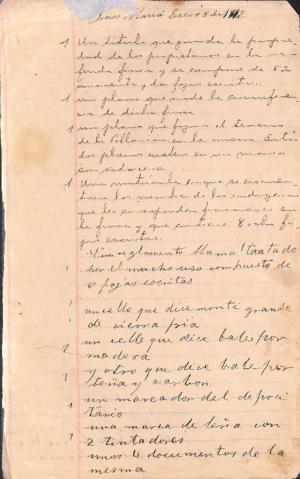 Jesus Maria Enero 8 de 1912.
1 Un titulo que guarda la propie
dad de los propietarios en la re
ferida finca y se compone de 52
cincuenta y dos fojas escritas.
1 un plano que mide la circunfe
cia de dicha finca
1 un plano que fija el terreno
de la Poblacion en la misma Entre
dos planos existen en un mismo
1 Una matricula en que se encuen
tran los nombre de los indigenas
que les corresponden fracciones en
la finca y que contiene 8 ocho fo
jas escritas.
1 Un reglamento Mama! tratado
por el mucho uso compuesto de
6 fojas escritas
1 un cello que dice monte grande
de cierra fria
1 un cello que dice bale por
madera
1 y otro que dice bale por
leña y carbon
1 un marcador del depoci
tario
1 una marca de leña con
2 tintadores
unos 4 documentos de la
mesma